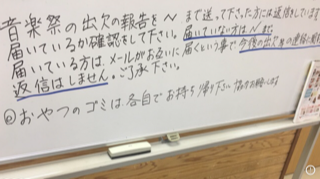 音楽祭の出欠の報告を〜まで送って下さった方には返信をしています
届いているか確認をして下さい。届いていない方は〜まで。
届いている方は、メールがお互いに届くという事で今後の出欠の連絡に
返信はしません。ご了承下さい。
おやつのゴミは各自でお持ち帰り下さい